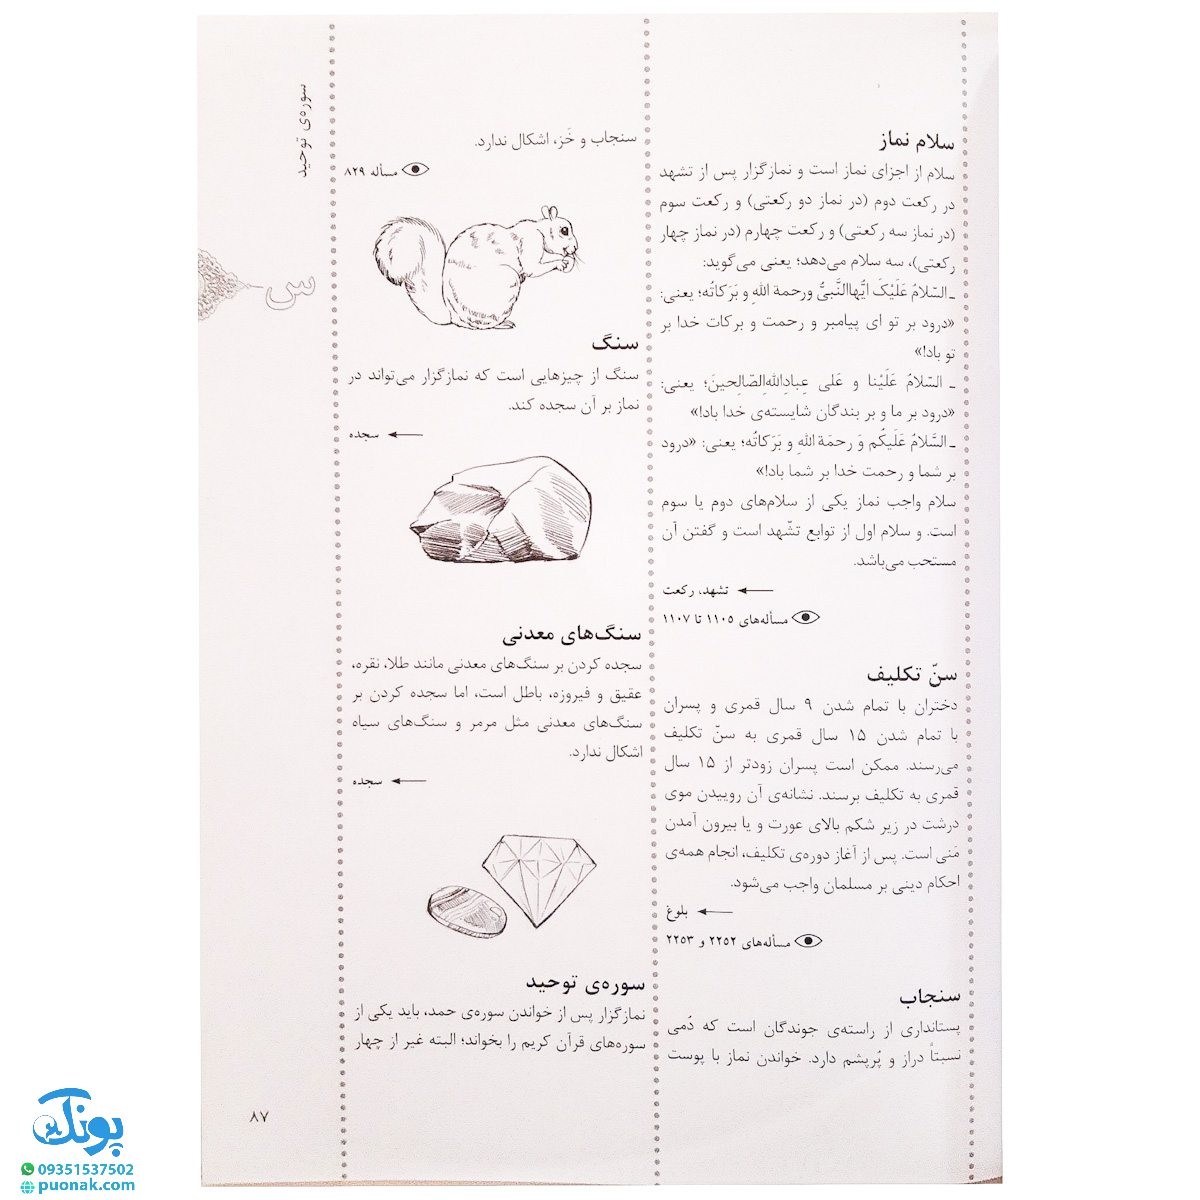 سوره‌ی توحید
س
سلام نماز
سلام از اجزای نماز است و نمازگزار پس از تشهد
در رکعت دوم (در نماز دو رکعتی) و رکعت سوم
(در نماز سه رکعتی) و رکعت چهارم (در نماز چهار
رکعتی)، سه سلام می‌دهد؛ یعنی می‌گوید:
ـ السّلامُ عَلَیْکَ ایُّهاالنَّبیُّ ورحمة اللهِ و بَرَکاتُه؛ یعنی:
«درود بر تو ای پیامبر و رحمت و برکات خدا بر
تو باد!»
ـ السّلامُ عَلَیْنا و عَلی عِبادِاللهِ‌الصّالِحینَ؛ یعنی:
«درود بر ما و بر بندگان شایسته‌ی خدا باد!»
ـ السَّلامُ عَلَیکُم وَ رحمَة اللهِ و بَرَکاتُه؛ یعنی: «درود
بر شما و رحمت خدا بر شما باد!»
سلام واجب نماز یکی از سلام‌های دوم یا سوم
است. و سلام اول از توابع تشّهد است و گفتن آن
مستحب می‌باشد.
تشهد، رکعت
مسأله‌های ۱۱۰۵ تا ۱۱۰۷
سنّ تکلیف
دختران با تمام شدن ۹ سال قمری و پسران
با تمام شدن ۱۵ سال قمری به سنّ تکلیف
می‌رسند. ممکن است پسران زودتر از ۱۵ سال
قمری به تکلیف برسند. نشانه‌ی آن روییدن موی
درشت در زیر شکم بالای عورت و یا بیرون آمدن
مَنی است. پس از آغاز دوره‌ی تکلیف، انجام همه‌ی
احکام دینی بر مسلمان واجب می‌شود.
بلوغ
مسأله‌های ۲۲۵۲ و ۲۲۵۳
سنجاب
پستانداری از راسته‌ی جوندگان است که دُمی
نسبتاً دراز و پُرپشم دارد. خواندن نماز با پوست
سنجاب و خَز، اشکال ندارد.
مسأله ۸۲۹
سنگ
سنگ از چیزهایی است که نمازگزار می‌تواند در
نماز بر آن سجده کند.
سجده
سنگ‌های معدنی
سجده کردن بر سنگ‌های معدنی مانند طلا، نقره،
عقیق و فیروزه، باطل است، اما سجده کردن بر
سنگ‌های معدنی مثل مرمر و سنگ‌های سیاه
اشکال ندارد.
سجده
سوره‌ی توحید
نمازگزار پس از خواندن سوره‌ی حمد، باید یکی از
سوره‌های قرآن کریم را بخواند؛ البته غیر از چهار
۸۷
پونک
09351537502
puonak.com